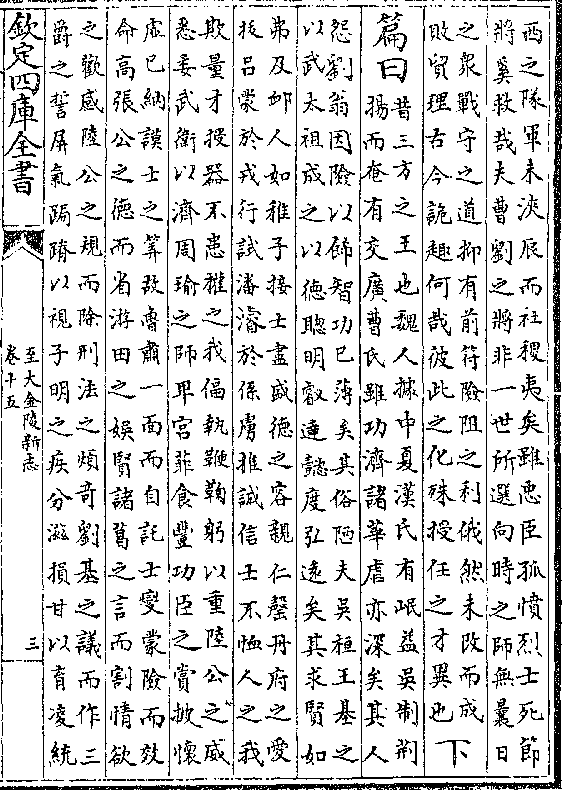 西之隊軍未浹辰而社稷夷矣雖忠臣孤憤烈士死節
將奚救哉夫曹劉之將非一世所選向時之師無曩日
之衆戰守之道抑有前符險阻之利俄然未改而成
敗貿理古今詭趣何哉彼此之化殊授任之才異也
下
篇曰
昔三方之王也魏人據中夏漢民有岷益吳制荆
揚而奄有交廣曹氏雖功濟諸華虐亦深矣其人
怨劉翁因險以飾智功已薄矣其俗陋夫吳桓王基之
以武太祖成之以德聰明叡達懿度弘遠矣其求賢如
弗及卹人如稚子接士盡盛德之容親仁罄丹府之愛
拔呂蒙於戎行試潘濬於係虜推誠信士不恤人之我
欺量才授器不患權之我偪執鞭鞠躬以重陸公之威
悉委武衛以濟周瑜之師卑宮菲食豐功臣之賞披懷
虛已納謨士之算故魯肅一面而自託士燮蒙險而效
命高張公之德而省游田之娛賢諸葛之言而割情欲
之歡感陸公之規而除刑法之煩奇劉基之議而作三
爵之誓屏氣跼蹐以視子明之疾分滋損甘以育凌統
欽定四庫全書
至大金陵新志
卷十五
三